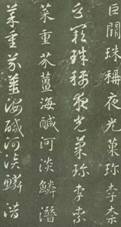 巨闕珠稱夜光菓珍李柰
巨闕珠稱夜光菓珍李柰
菜重芥薑海鹹河淡鱗潛
菜重芥薑海鹹河淡鱗潛